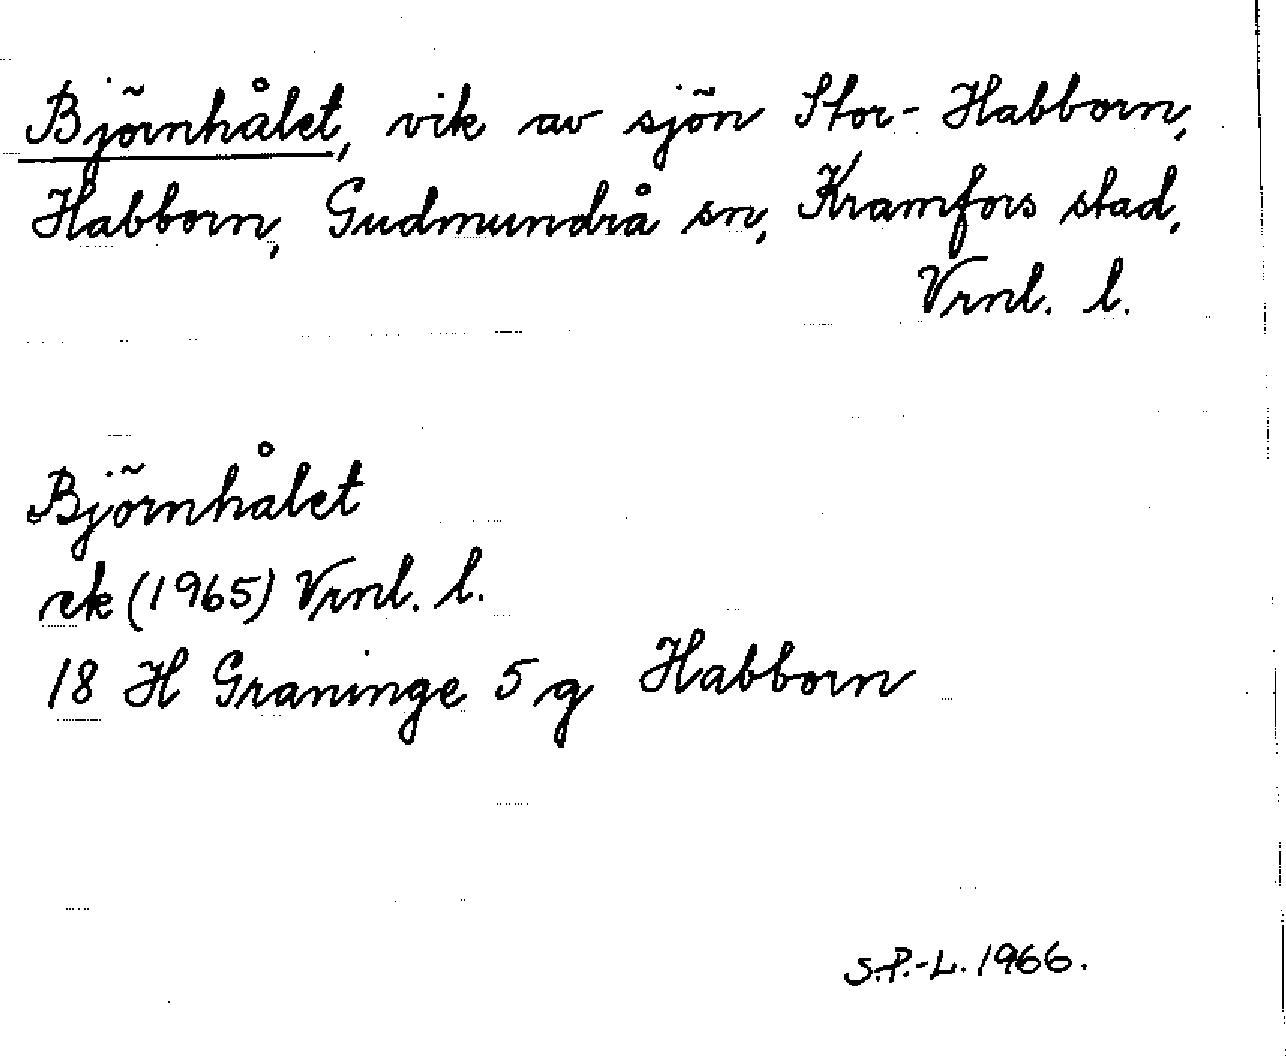 Björnhålet, vik av sjön Stor-Habborn,
Habborn, Gudmundrå sn, Kramfors stad,
Vrnl. l.
Björnhålet
ek (1965) Vrnl. l.
18 H Graninge 5 g Habborn
S.P.-L. 1966.